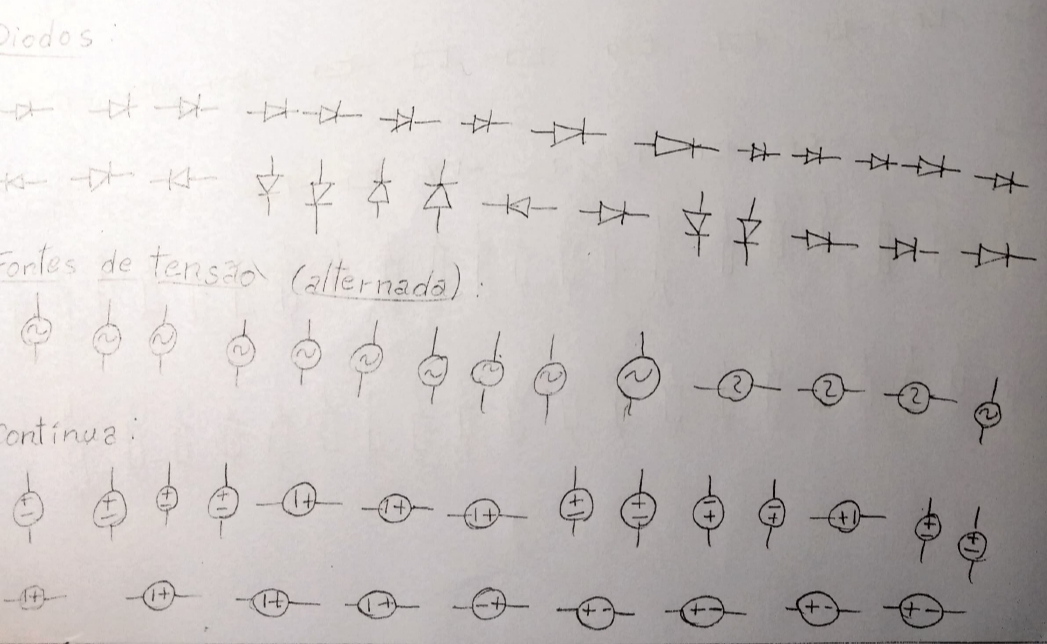 Diodos:
Fontes de tensão (alternada):
Contínua: